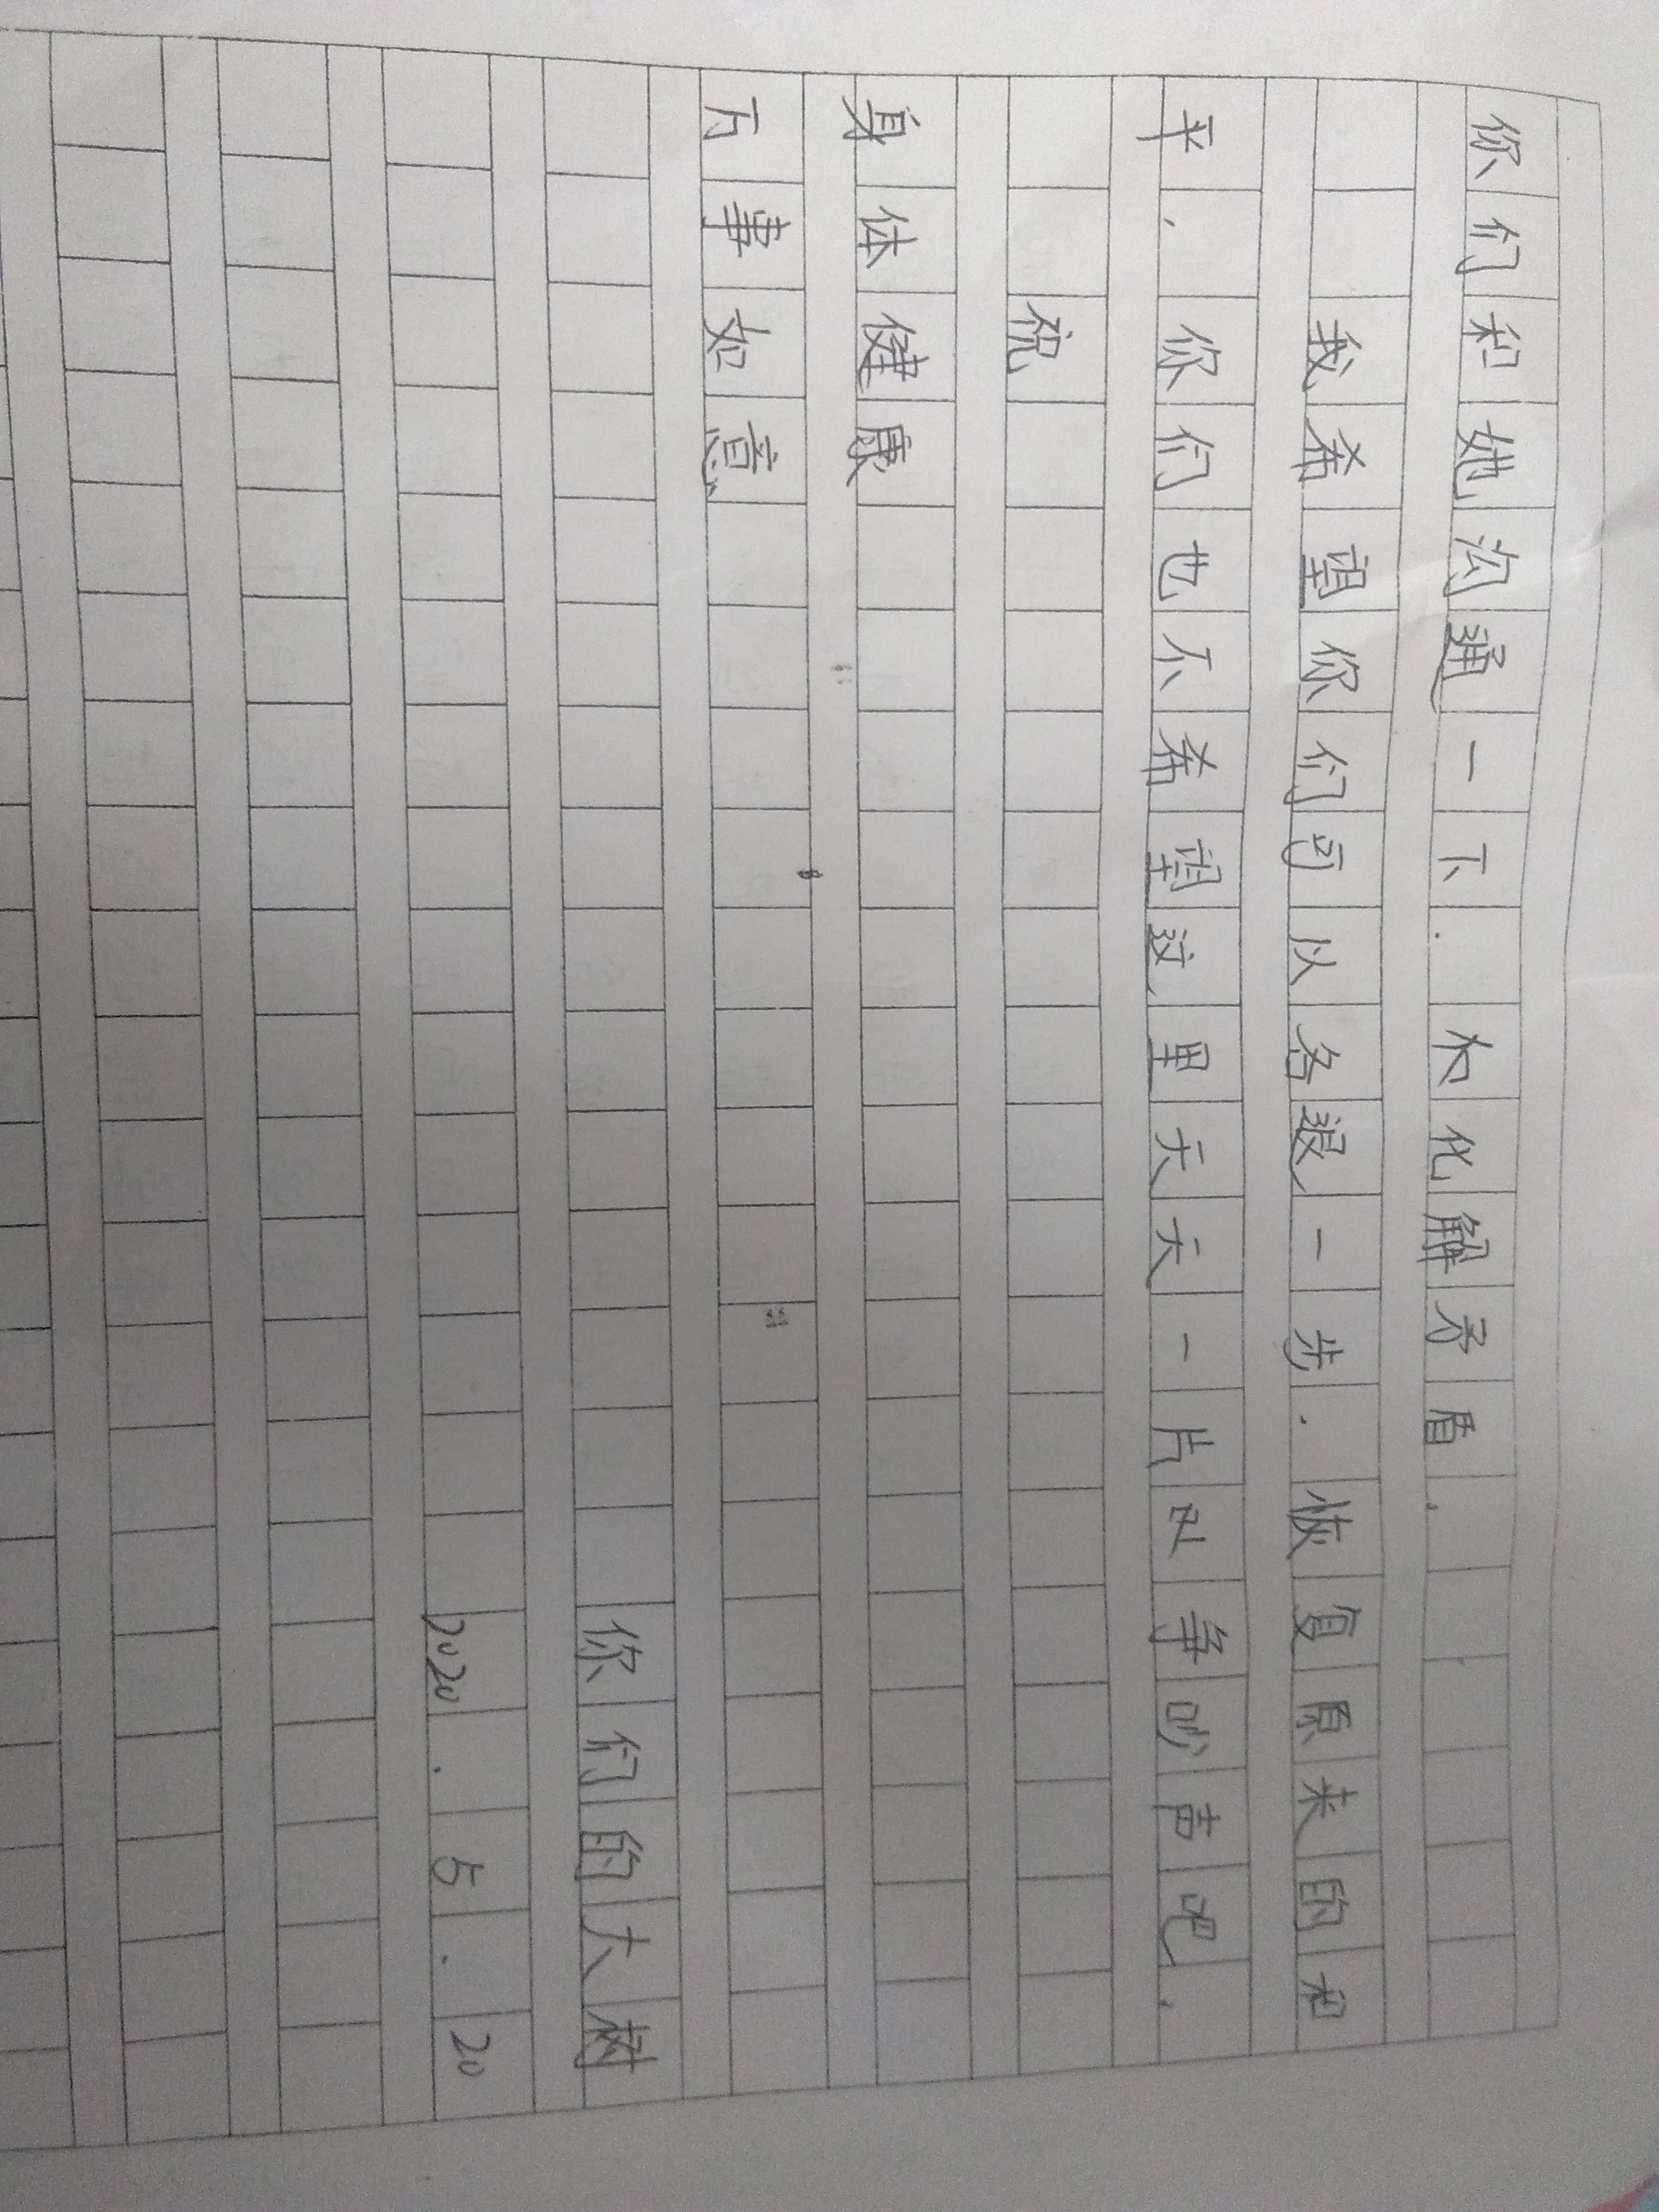 你们和她沟通一下.木化解矛盾.
我希望你们可以各退一步.恢复原来的和
平.你们也不希望这里天天一片叹争吵声吧.
祝
身体健康
万事如意
你们的大树
2020.5.20